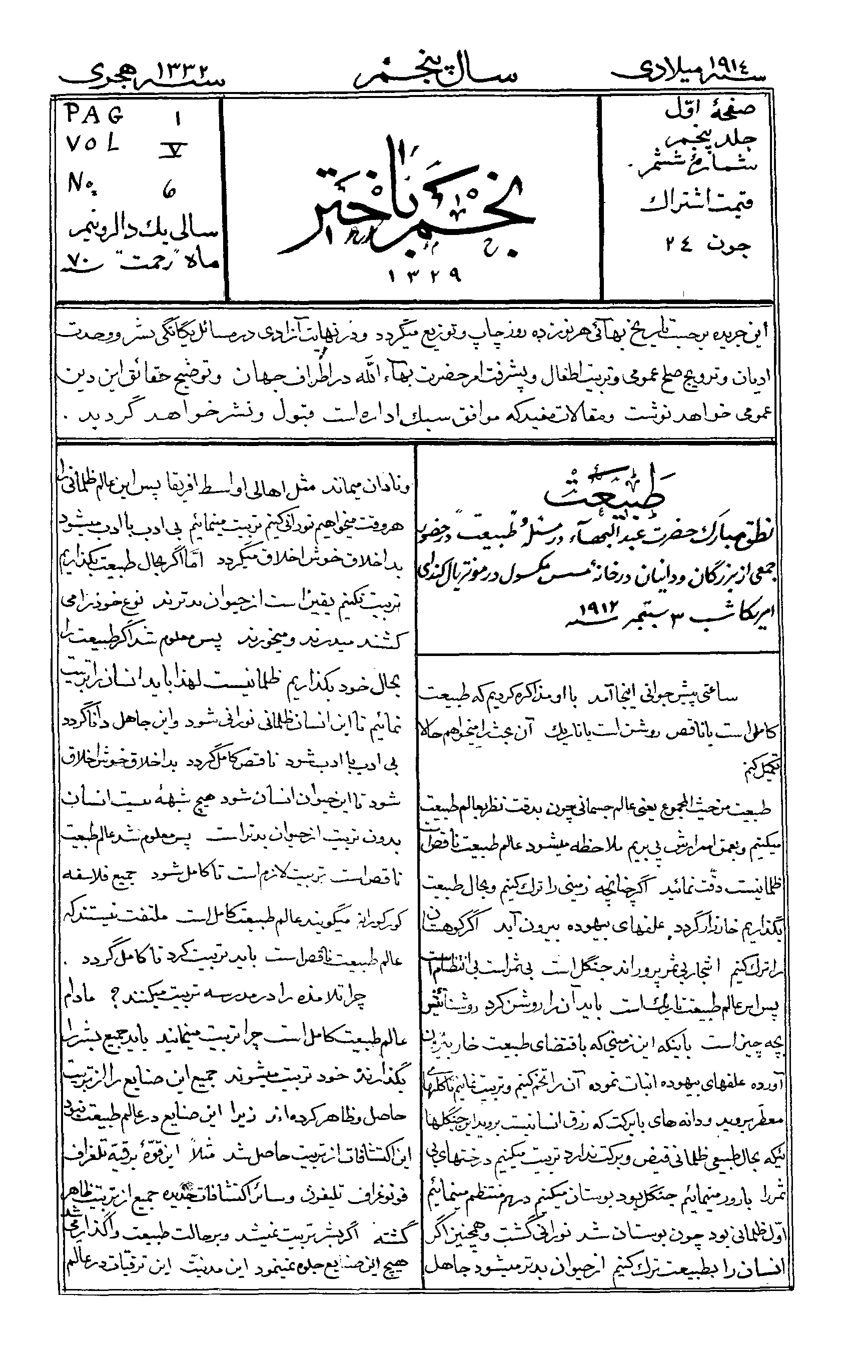 سنه ١٩١٤ میلادی
سال پنجم
سنه ١٣٣٢ هجری
صفحهٔ اوّل
جلد پنجم
شمارهٔ ششم .
قیمت اشتراک
جون ٢٤
نجم باختر
١٣٢٩
PAG 1
VOL V
No. 6
سالی یک دالر و نیم
ماه "رحمت" سنه ٧٠
این جریده برحسب تاریخ بهائی هر نوزده روز چاپ و توزیع میگردد و در نهایت آزادی در مسائل یگانگی بشر و وحدت
ادیان و ترویج صلح عمومی و تربیت اطفال و پیشرفت امر حضرت بهاءالله در اطراف جهان و توضیح حقائق این دین
عمومی خواهد نوشت و مقالات مفیده که موافق سبک اداره است قبول و نشر خواهد گردید .
طبیعت
نطق مبارک حضرت عبدالبهآء در مسئلهٔ "طبیعت" در حضور
جمعی از بزرگان و دانیان در خانهٔ مسس مکسول در مونتریال کندای
امریکا شب ٣ سپتمبر سنه ١٩١٢
ساعتی پیش جوانی اینجا آمد با او مذاکره کردیم که طبیعت
کامل است یا ناقص روشن است یا تاریک آن بحث را میخواهم حالا
تکمیل کنم
طبیعت من حیث المجموع یعنی عالم جسمانی چون بدقت نظر بعالم طبیعت
میکنیم و بعمق اسرارش پی بریم ملاحظه میشود عالم طبیعت ناقص است
ظلمانیست دقّت نمائید اگر چنانچه زمینی را ترک کنیم و بحال طبیعت
بگذاریم خارزار گردد علفهای بیهوده بیرون آید اگر کوهستان
را ترک کنیم اشجار بی ثمر پروراند جنگل است بی ثمر است بی انتظام است
پس این عالم طبیعت تاریک است باید آن را روشن کرد روشنائیش
بچه چیز است باینکه این زمینی که باقتضای طبیعت خار بیرون
آورده علفهای بیهوده انبات نموده آن را تخم کنیم و تربیت نمائیم تا گلهای
معطر بروید و دانه های با برکت که رزق انسانست بروید این جنگلها
که بحال طبیعی ظلمانی فیض و برکت ندارد تربیت میکنیم درختهای بی
ثمر را بارور مینمائیم جنگل بود بوستان میکنیم درهم منتظم مینمائیم
اول ظلمانی بود چون بوستان شد نورانی گشت و همچنین اگر
انسان را بطبیعت ترک کنیم از حیوان بدتر میشود جاهل
و نادان میماند مثل اهالی اواسط افریقا پس این عالم ظلمانی را
هر وقت میخواهیم نورانی کنیم تربیت مینمائیم بی ادب با ادب میشود
بد اخلاق خوش اخلاق میگردد امّا اگر بحال طبیعت بگذاریم
تربیت نکنیم یقین است از حیوان بدترند نوع خود را می
کشند میدرند و میخورند پس معلوم شد اگر طبیعت را
بحال خود بگذاریم ظلمانیست لهذا باید انسان را تربیت
نمائیم تا این انسان ظلمانی نورانی شود و این جاهل دانا گردد
بی ادب با ادب شود ناقص کامل گردد بد اخلاق خوش اخلاق
شود تا این حیوان انسان شود هیچ شبهه نیست انسان
بدون تربیت از حیوان بدتر است پس معلوم شد عالم طبیعت
ناقص است تربیت لازم است تا کامل شود جمیع فلاسفه
کورکورانه میگویند عالم طبیعت کامل است ملتفت نیستند که
عالم طبیعت ناقص است باید تربیت کرد تا کامل گردد .
چرا تلامذه را در مدرسه تربیت میکنند ؟ مادام
عالم طبیعت کامل است چرا تربیت مینمایند باید جمیع بشر را
بگذارند خود تربیت میشوند جمیع این صنایع را از تربیت
حاصل و ظاهر کرده اند زیرا این صنایع در عالم طبیعت نبود
این اکتشافات از تربیت حاصل شد مثلاً این قوّهٔ برقیه تلغراف
فونوغراف تلیفون و سائر اکتشافات جدیده جمیع از تربیت ظاهر
گشته اگر بشر تربیت نمیشد و بر حالت طبیعت واگذار می شد
هیچ این صنایع جلوه نمینمود این مدنیّت این ترقیات در عالم